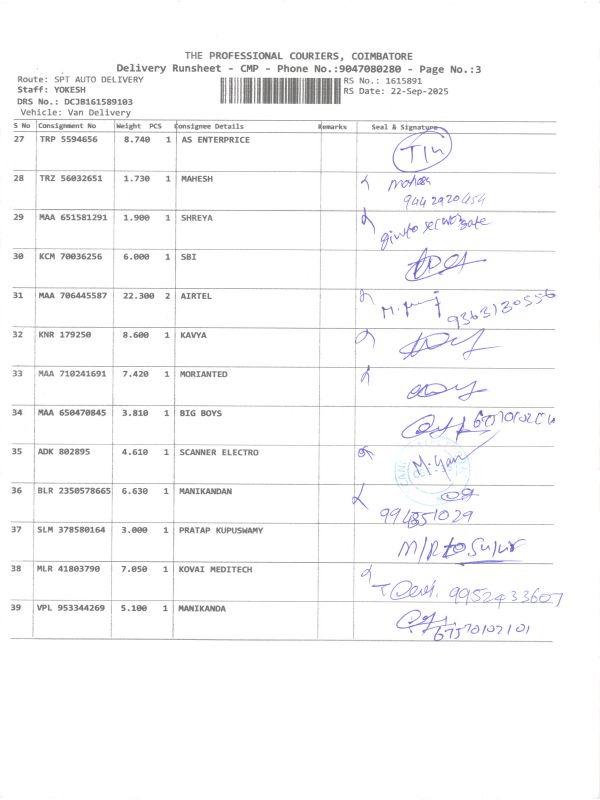 THE PROFESSIONAL COURIERS, COIMBATORE
Delivery Runsheet - CMP - Phone No.:9047080280 - Page No.:3
Route: SPT AUTO DELIVERY RS No.: 1615891
Staff: YOKESH RS Date: 22-Sep-2025
DRS No.: DCJB161589103
Vehicle: Van Delivery
S No Consignment No Weight PCS Consignee Details Remarks Seal & Signature
27 TRP 5594656 8.740 1 AS ENTERPRICE
28 TRZ 56032651 1.730 1 MAHESH
9442920454
29 MAA 651581291 1.900 1 SHREYA
30 KCM 70036256 6.000 1 SBI
31 MAA 706445587 22.300 2 AIRTEL
9363130556
32 KNR 179250 8.600 1 KAVYA
33 MAA 710241691 7.420 1 MORIANTED
34 MAA 650470845 3.810 1 BIG BOYS
35 ADK 802895 4.610 1 SCANNER ELECTRO
36 BLR 2350578665 6.630 1 MANIKANDAN
37 SLM 378580164 3.000 1 PRATAP KUPUSWAMY
38 MLR 41803790 7.050 1 KOVAI MEDITECH
9952433607
39 VPL 953344269 5.100 1 MANIKANDA